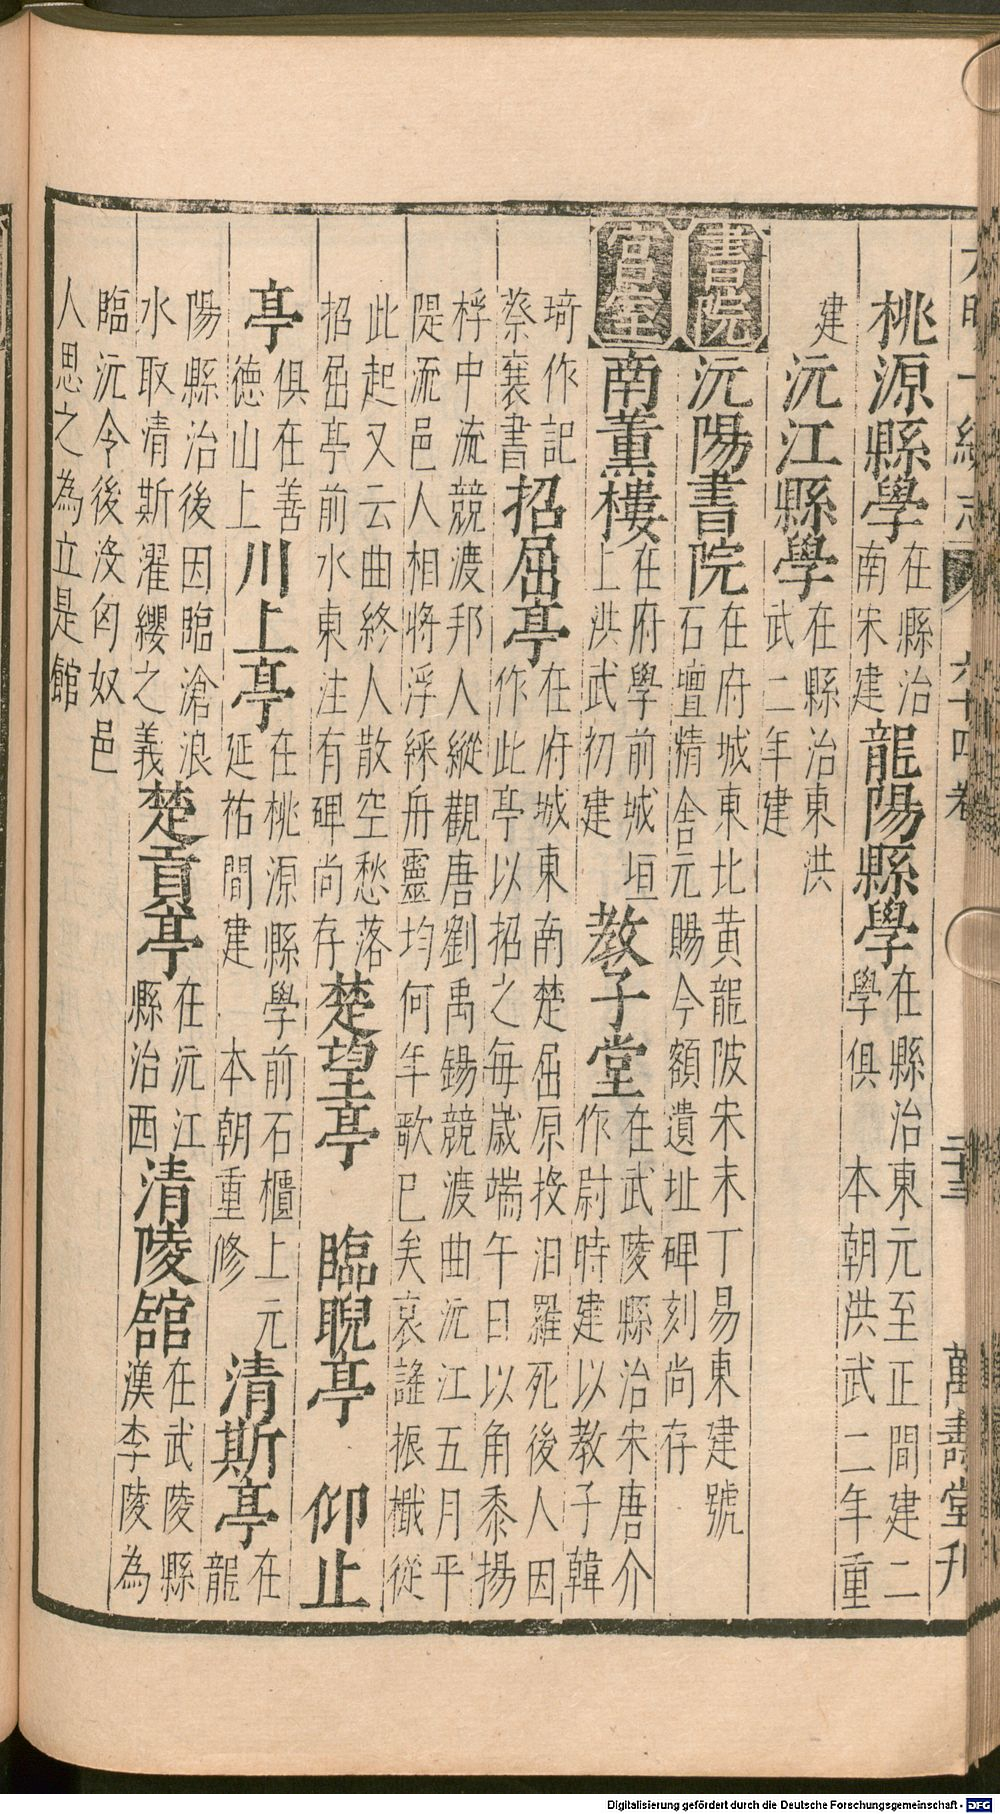 大明一統志 六十四卷 二十三 萬壽堂刊
桃源縣學 在縣治南宋建 龍陽縣學 在縣治東元至正間建二學俱 本朝洪武二年重
建 沅江縣學 在縣治東洪武二年建
書院 沅陽書院 在府城東北黃龍陂宋末丁易東建號石壇精舍元賜今額遺址碑刻尚存
宮室 南薰樓 在府學前城垣上洪武初建 教子堂 在武陵縣治宋唐介作尉時建以教子韓
琦作記蔡襄書 招屈亭 在府城東南楚屈原投汨羅死後人因作此亭以招之每歲端午日以角黍揚
桴中流競渡邦人縱觀唐劉禹錫競渡曲沅江五月平隄流邑人相將浮綵舟靈均何年歌已矣哀謠振檝從
此起又云曲終人散空愁落招屈亭前水東注有碑尚存 楚望亭 臨睨亭 仰止
亭 俱在善徳山上 川上亭 在桃源縣學前石櫃上元延祐間建 本朝重修 清斯亭 在龍
陽縣治後因臨滄浪水取清斯濯纓之義 楚貢亭 在沅江縣治西 清陵館 在武陵縣漢李陵為
臨沅令後没匈奴邑人思之為立是館
Digitalisierung gefördert durch die Deutsche Forschungsgemeinschaft - DFG